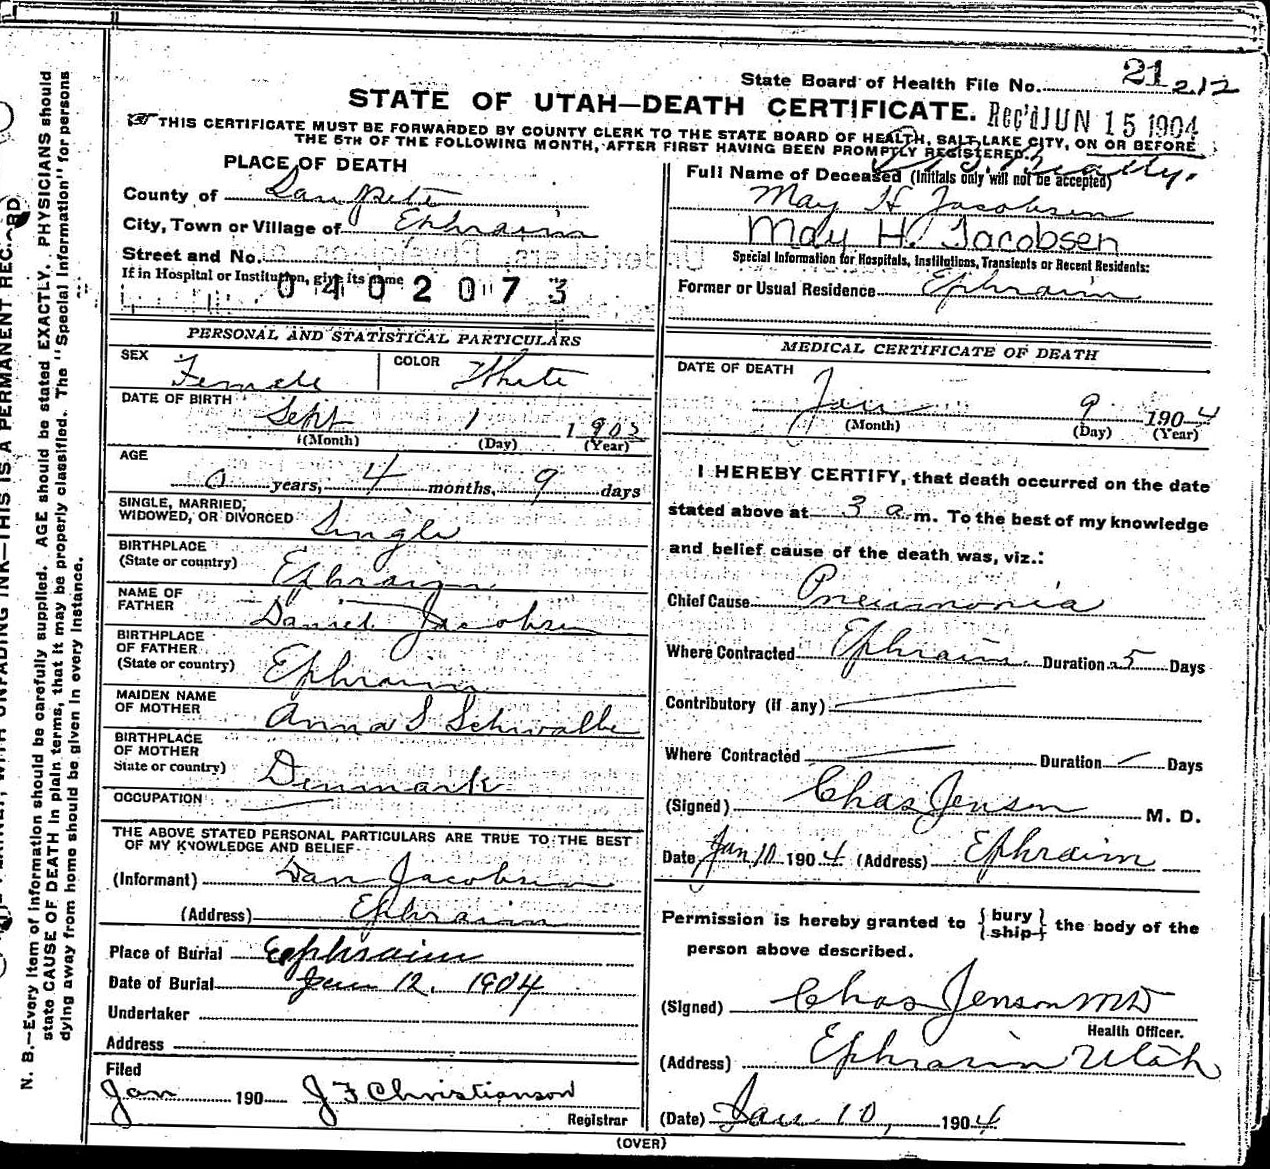 State Board of Health File No. 21 212
STATE OF UTAH—DEATH CERTIFICATE.
Rec'd JUN 15 1904
THIS CERTIFICATE MUST BE FORWARDED BY COUNTY CLERK TO THE STATE BOARD OF HEALTH, SALT LAKE CITY, ON OR BEFORE
THE 5TH OF THE FOLLOWING MONTH, AFTER FIRST HAVING BEEN PROMPTLY REGISTERED.
PLACE OF DEATH
County of Sanpete
City, Town or Village of Ephraim
Street and No.
If in Hospital or Institution, give its name
0402073
Full Name of Deceased (Initials only will not be accepted)
May H Jacobsen
May H. Jacobsen
Special Information for Hospitals, Institutions, Transients or Recent Residents:
Former or Usual Residence Ephraim
PERSONAL AND STATISTICAL PARTICULARS
SEX Female
COLOR White
DATE OF BIRTH
Sept 1 1903
(Month) (Day) (Year)
AGE
0 years, 4 months, 9 days
SINGLE, MARRIED,
WIDOWED, OR DIVORCED Single
BIRTHPLACE
(State or country) Ephraim
NAME OF
FATHER Daniel Jacobsen
BIRTHPLACE
OF FATHER
(State or country) Ephraim
MAIDEN NAME
OF MOTHER Anna S Schwalbe
BIRTHPLACE
OF MOTHER
State or country) Denmark
OCCUPATION
THE ABOVE STATED PERSONAL PARTICULARS ARE TRUE TO THE BEST
OF MY KNOWLEDGE AND BELIEF
(Informant) Dan Jacobsen
(Address) Ephraim
Place of Burial Ephraim
Date of Burial Jan 12. 1904
Undertaker
Address
Filed
Jan 190 J F Christianson
Registrar
MEDICAL CERTIFICATE OF DEATH
DATE OF DEATH
Jan 9 1904
(Month) (Day) (Year)
I HEREBY CERTIFY, that death occurred on the date
stated above at 3 a.m. To the best of my knowledge
and belief cause of the death was, viz.:
Chief Cause Pneumonia
Where Contracted Ephraim. Duration 5 Days
Contributory (if any)
Where Contracted Duration Days
(Signed) Chas Jenson M. D.
Date Jan 10 1904 (Address) Ephraim
Permission is hereby granted to {bury
ship} the body of the
person above described.
(Signed) Chas Jenson MD
Health Officer.
(Address) Ephraim Utah
(Date) Jan 10, 1904
(OVER)
N. B.—Every item of information should be carefully supplied. AGE should be stated EXACTLY. PHYSICIANS should
state CAUSE OF DEATH in plain terms, that it may be properly classified. The "Special Information" for persons
dying away from home should be given in every instance.
WITH UNFADING INK—THIS IS A PERMANENT RECORD